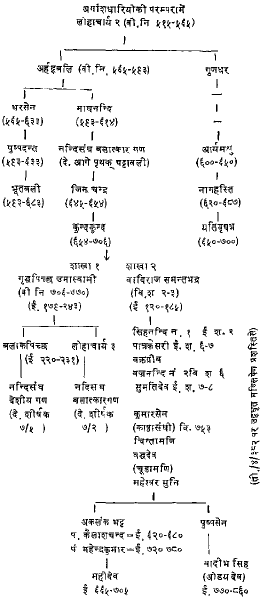 अगांशधारियोंकी परम्परामें
लोहाचार्य २ (वी.नि ५१५-५६५)
अर्हद्बलि (वी.नि. ५६५-५९३)
गुणधर
धरसेन
(५६५-६३३)
माघनन्दि
(५९३-६१४)
पुष्पदन्त
(५९३-६३३)
नन्दिसंघ बलात्कार गण
(दे. आगे पृथक् पट्टावली)
आर्यमंक्षु
(६००-६५०)
भूतबली
(५९३-६८३)
जिन चन्द्र
(६४५-६५४)
नागहस्ति
(६२०-६८७)
कुन्दकुन्द
(६५४-७०६)
यतिवृषभ
(६५०-७००)
शाखा १
गृद्धपिच्छ उमास्वामी
(वी नि ७०६-७७०)
(ई. १७९-२४३)
शाखा २
वादिराज समन्तभद्र
(वि.श २-३)
(ई. १२०-१८५)
बलाकपिच्छ
लोहाचार्य ३
(ई २२०-२३१)
नन्दिसंघ
देशीय गण
(दे. शीर्षक
७/५)
नंदिसंघ
बलात्कारगण
(दे. शीर्षक
७/२)
सिंहनन्दि न. १ ई श. २
पात्रकेसरी ई. श. ६-७
वक्रग्रीव
वज्रनन्दि नं २ वि श ६
सुमतिदेव ई. श. ७-८
कुमारसेन
(काष्ठासंघी) वि. ७५३
चिन्तामणि
(चूड़ामणि)
महेश्वर मुनि
अकलंक भट्ट
पं. कैलाशचन्द=ई. ६२०-६८०
पं महेन्द्रकुमार=ई. ७२० ७८०
पुष्पसेन
महीदेव
ई ६६५-७०५
वादीभ सिंह
(ओडय देव)
ई. ७७०-८६०
(ती./४/३८२ पर उद्धृत मल्लिषेण प्रशस्ति)